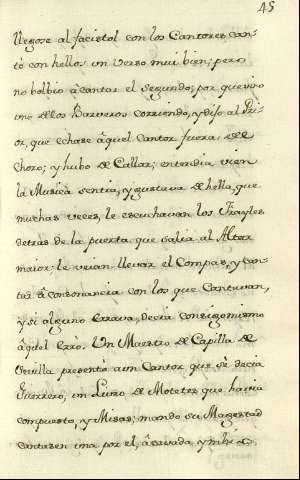 45
llegose al facistol con los Cantores, can-
tó con hellos un verso mui bien; pero
no bolbio à cantar el segundo; por que vino
uno delos Barveros corriendo, y dijo al Pri-
or, que echase àquel Cantor fuera, del
Choro; y hubo de Callar; entendia vien
la Musica sentia, y gustava de hella, que
muchas veces, le escuchavan los Frayles
detras de la puerta, que salia al Altar
maior: le veian llevar el Compas, y can-
tar à consonancia con los que Cantavan,
y si alguno errava, decia consigo mismo
àquel erró. Un Maestro de Capilla de
Sevilla presentó a un Cantor que se decia
Guerrero, un Libro de Motetes que havia
compuesto, y Misas; mando su Magestad
cantasen una por el, àcavada